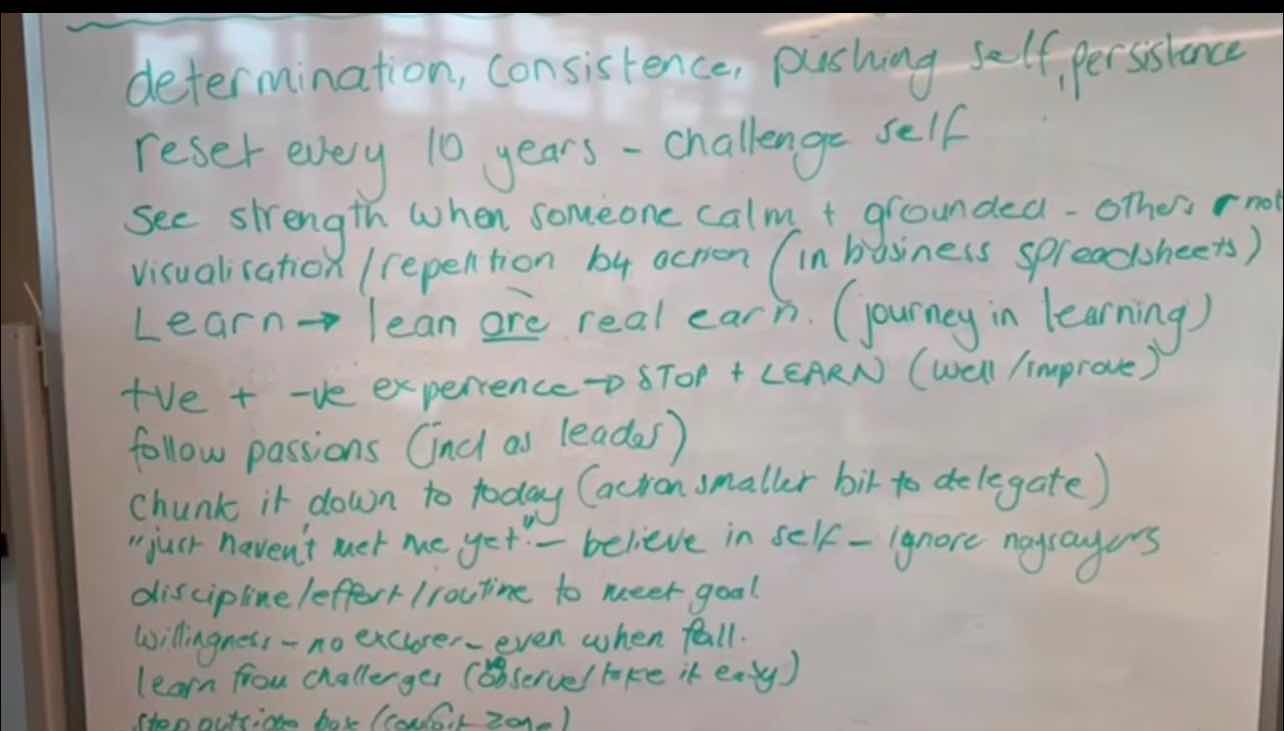 determination, consistence, pushing self, persistence
reset every 10 years - challenge self
See strength when someone calm + grounded - others r not
visualisation/repetition by action (in business spreadsheets)
Learn → lean are real earn. (journey in learning)
+ve + -ve experience → STOP + LEARN (well/improve)
follow passions (incl as leader)
chunk it down to today (action smaller bit to delegate)
"just haven't met me yet" - believe in self - ignore naysayers
discipline/effort/routine to meet goal
willingness - no excuses - even when fall.
learn from challenges (observe/take it easy)
step outside box (comfort zone)